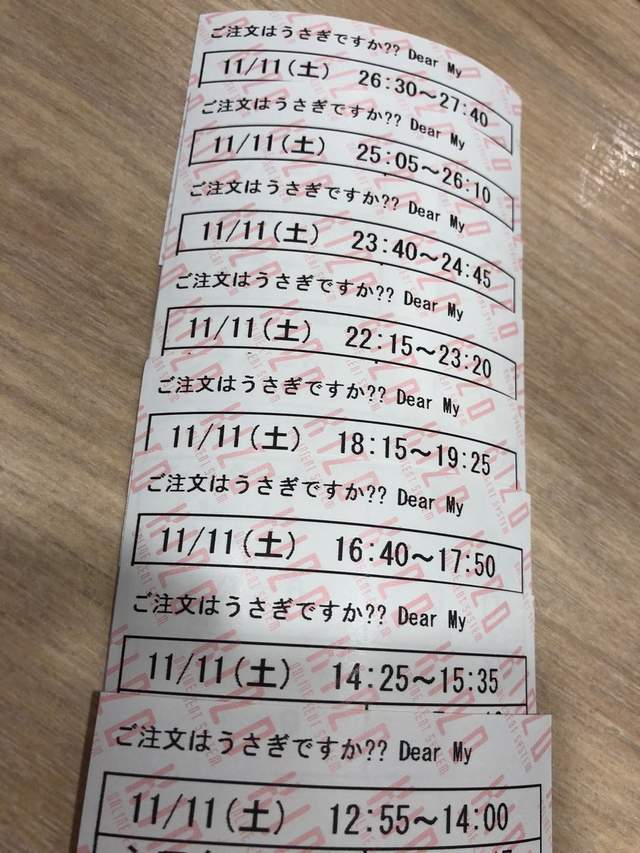 ご注文はうさぎですか?? Dear My
11/11(土) 26:30～27:40
ご注文はうさぎですか?? Dear My
11/11(土) 25:05～26:10
ご注文はうさぎですか?? Dear My
11/11(土) 23:40～24:45
ご注文はうさぎですか?? Dear My
11/11(土) 22:15～23:20
ご注文はうさぎですか?? Dear My
11/11(土) 18:15～19:25
ご注文はうさぎですか?? Dear My
11/11(土) 16:40～17:50
ご注文はうさぎですか?? Dear My
11/11(土) 14:25～15:35
ご注文はうさぎですか?? Dear My
11/11(土) 12:55～14:00